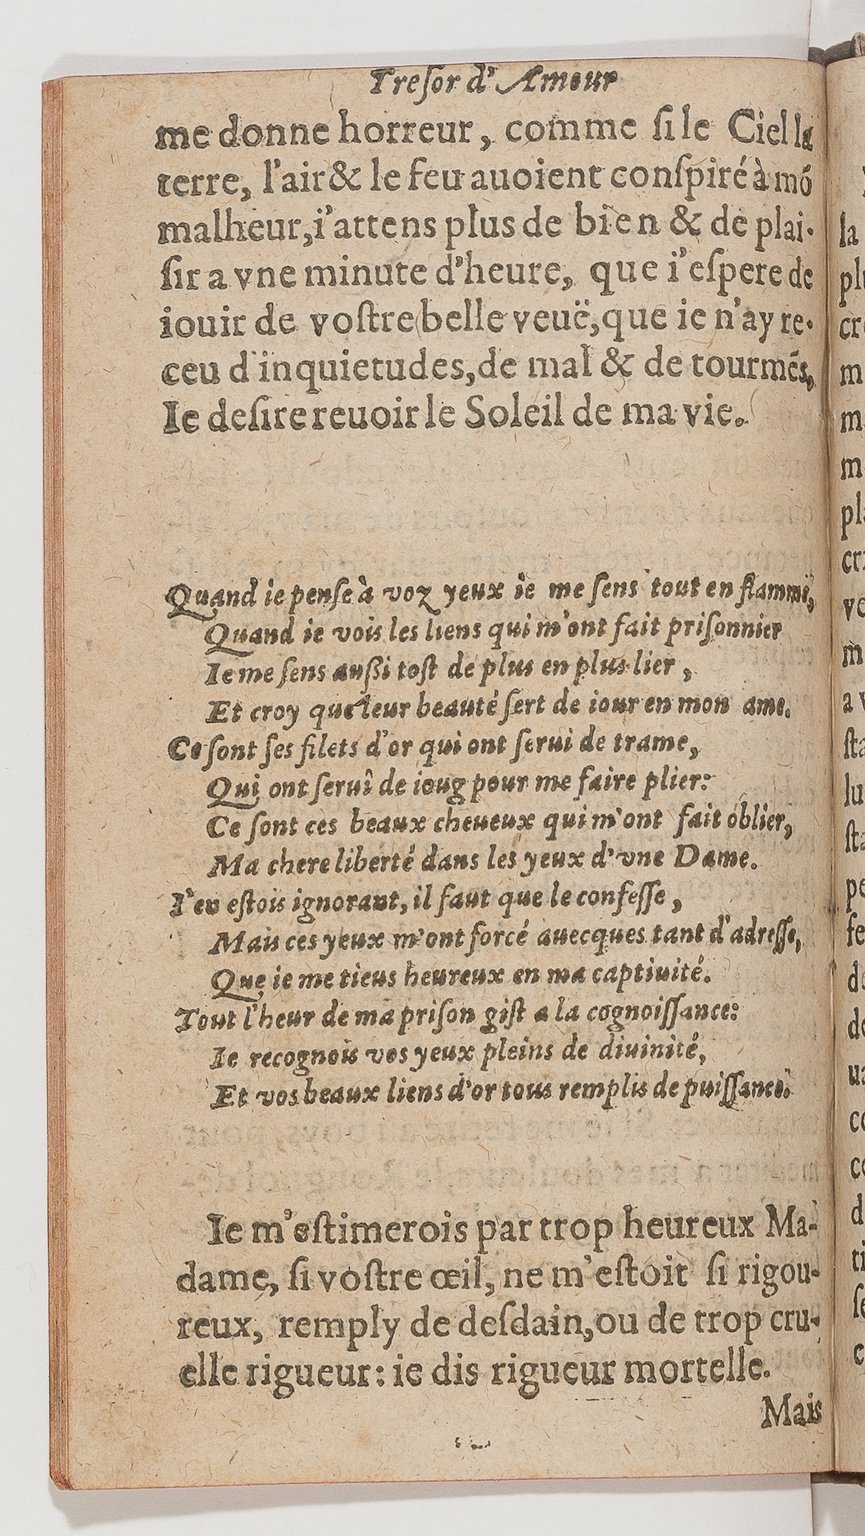 Tresor d'Amour
me donne horreur, comme si le Ciel la
terre, l'air & le feu auoient conspiré à mõ
malheur, i'attens plus de bien & de plai-
sir a vne minute d'heure, que i'espere de
iouir de vostre belle veuë, que ie n'ay re-
ceu d'inquietudes, de mal & de tourmẽs,
Ie desire reuoir le Soleil de ma vie.
Quand ie pense à voz yeux ie me sens tout en flamme,
Quand ie vois les liens qui m'ont fait prisonnier
Ie me sens aussi tost de plus en plus lier,
Et croy que leur beauté sert de iour en mon ame.
Ce sont ses filets d'or qui ont serui de trame,
Qui ont serui de ioug pour me faire plier:
Ce sont ces beaux cheueux qui m'ont fait oblier,
Ma chere liberté dans les yeux d'vne Dame.
I'en estois ignorant, il faut que le confesse,
Mais ces yeux m'ont forcé auecques tant d'adresse,
Que ie me tiens heureux en ma captiuité.
Tout l'heur de ma prison gist a la cognoissance:
Ie recognois vos yeux pleins de diuinité,
Et vos beaux liens d'or tous remplis de puissance.
Ie m'estimerois par trop heureux Ma-
dame, si vostre œil, ne m'estoit si rigou-
reux, remply de desdain, ou de trop cru-
elle rigueur: ie dis rigueur mortelle.
Mais